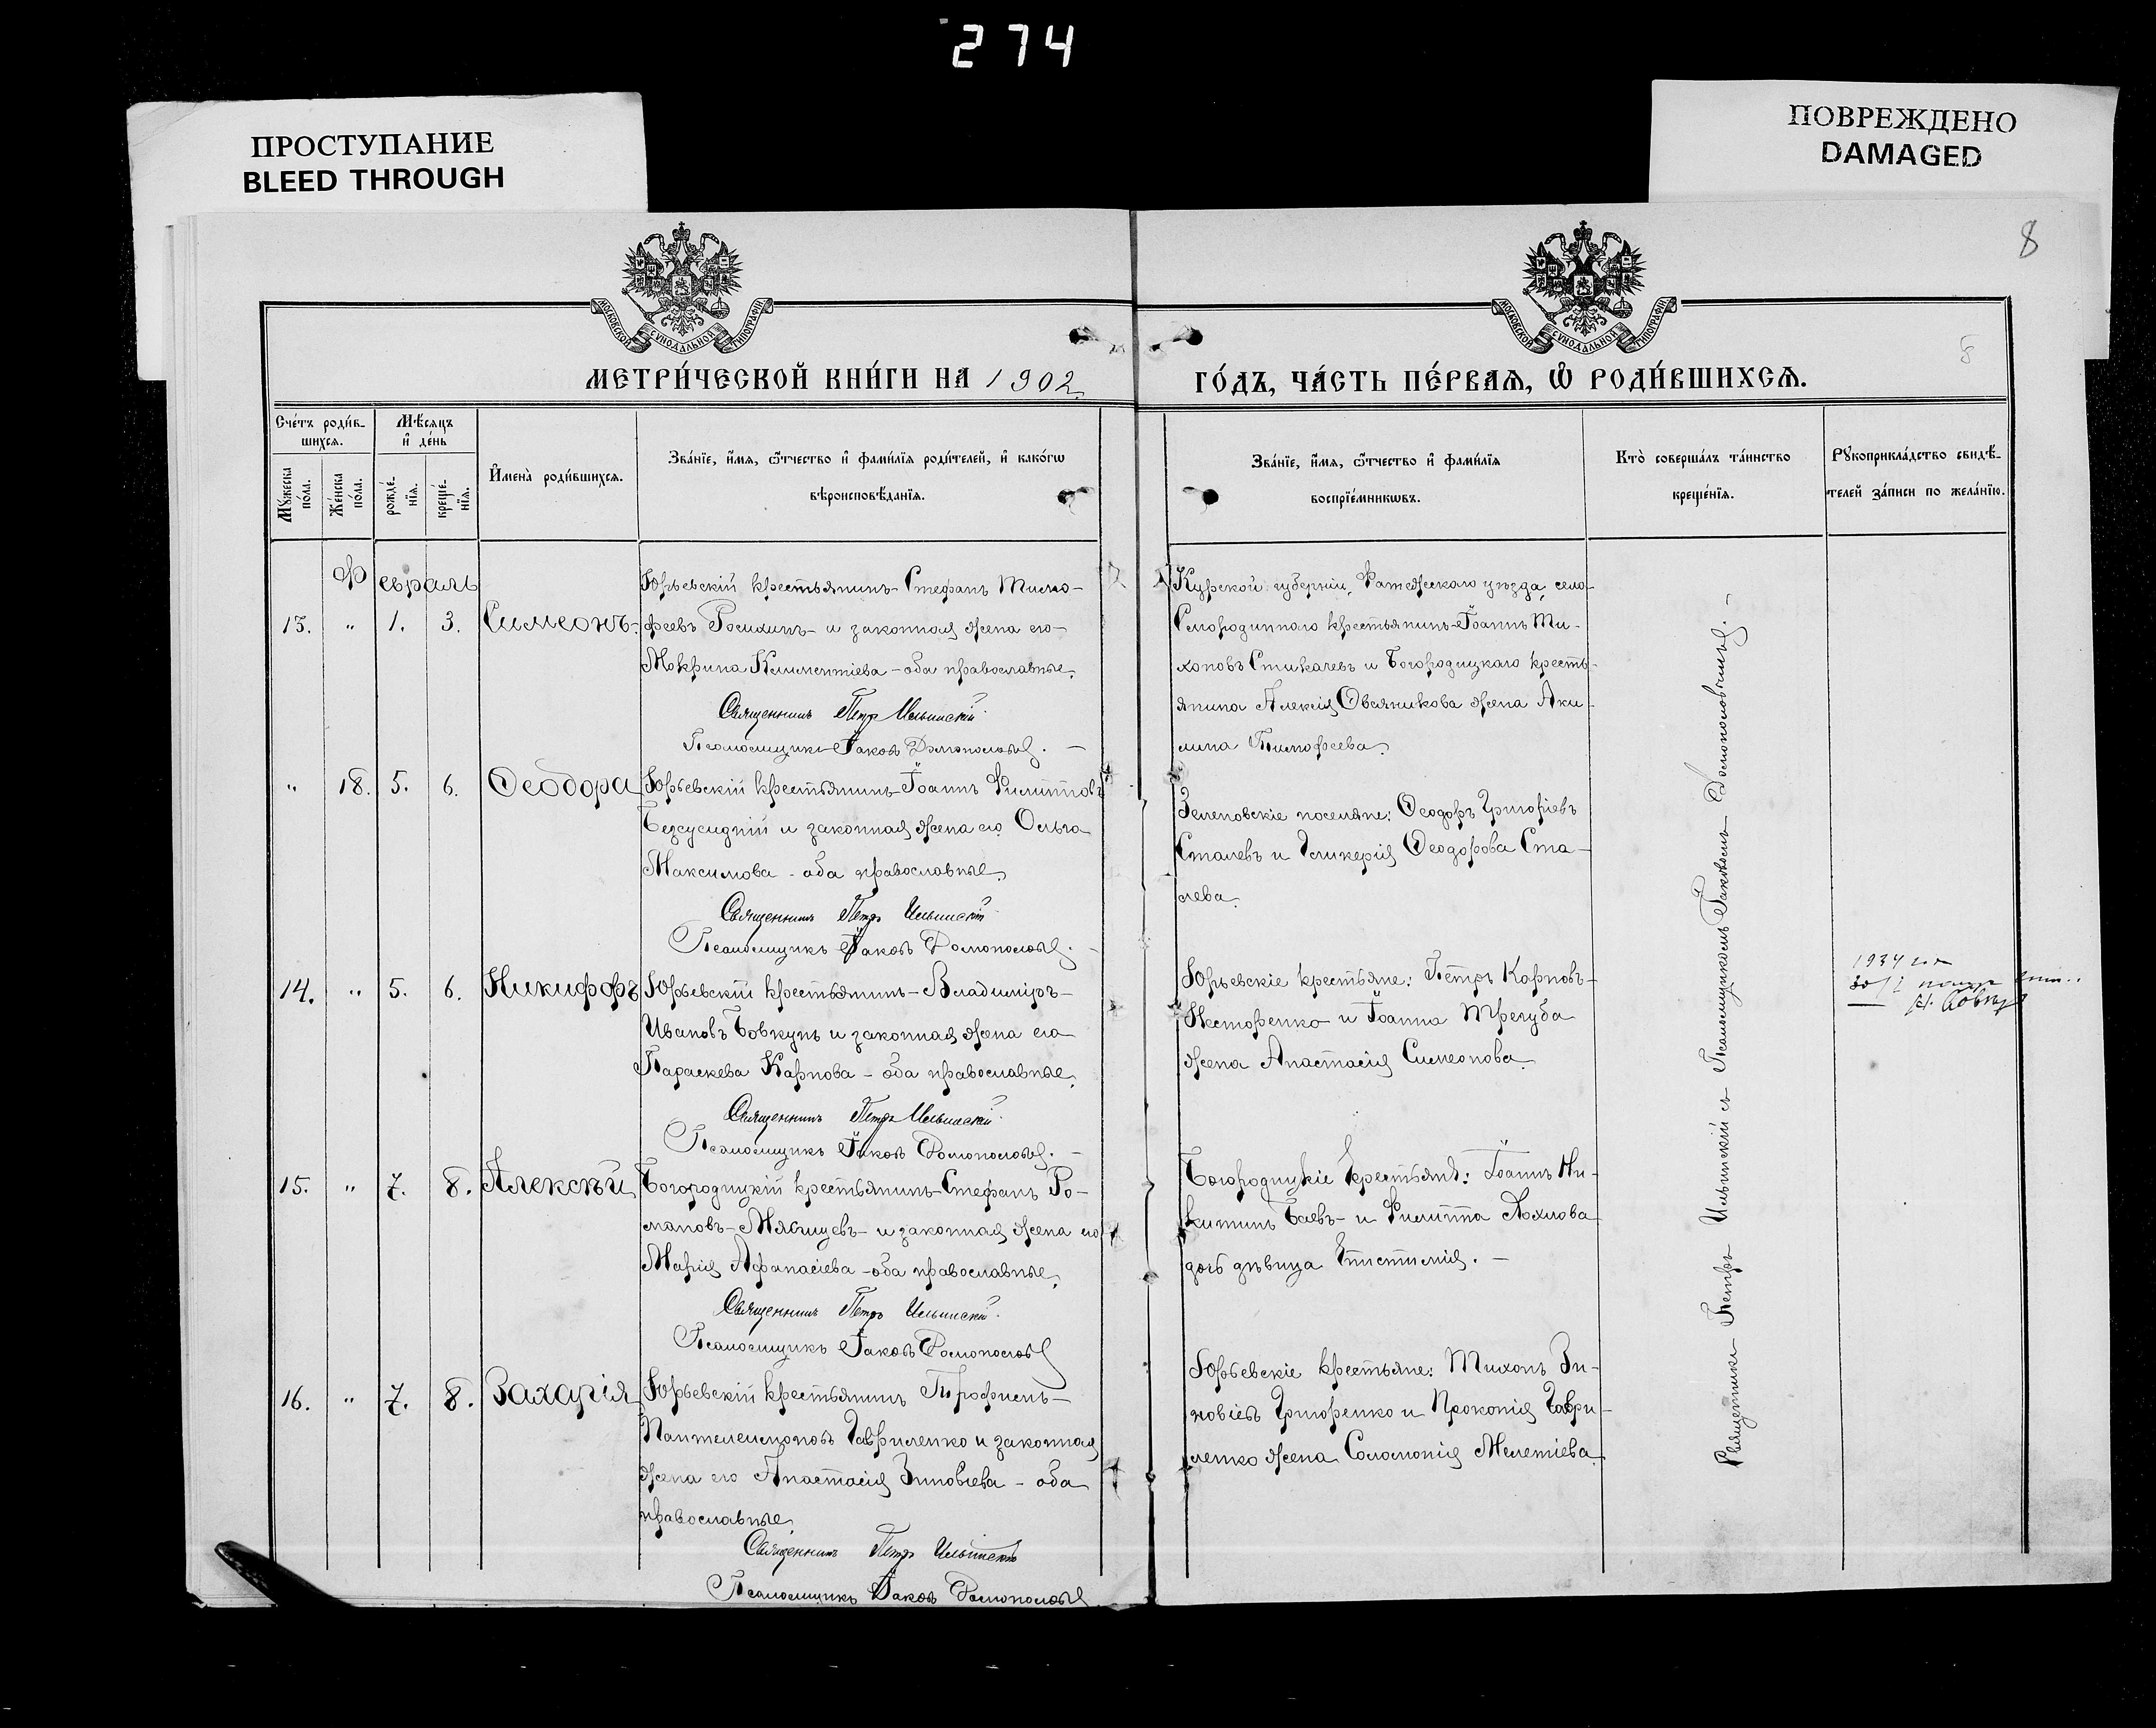 274
ПРОСТУПАНИЕ
BLEED THROUGH
ПОВРЕЖДЕНО
DAMAGED
8
МОСКОВСКОЙ СѴНОДАЛЬНОЙ ТИПОГРАФІИ
МОСКОВСКОЙ СѴНОДАЛЬНОЙ ТИПОГРАФІИ
8
МЕТРИ́ЧЕСКОЙ КНИ́ГИ НА 1902
ГО́ДЪ, ЧА́СТЬ ПЕ́РВАѦ, Ѡ РОДИ́ВШИХСѦ.
Сче́тъ роди́в-
шихсѧ.
Мѣ́сѧцъ
и҆ де́нь
Мꙋ́жеска
по́ла.
Же́нска
по́ла.
рожде́-
нїѧ.
креще́-
нїѧ.
И҆мена̀ роди́вшихсѧ.
Зва́нїе, и҆́мѧ, ѻ҆́тчество и҆ фами́лїѧ роди́телей, и҆ како́гѡ
вѣроисповѣ́данїѧ.
Зва́нїе, и҆́мѧ, ѻ҆́тчество и҆ фами́лїѧ
воспрїе́мникѡвъ.
Кто̀ соверша́лъ та́инство
креще́нїѧ.
Рꙋкоприкла́дство свидѣ́-
телей за́писи по жела́нїю.
Февраль
13. " 1. 3. Симеонъ
Юрьевскій крестьянинъ Стефанъ Тимо-
феевъ Росихинъ и законная жена его
Мокрина Климентіева - оба православные.
Священникъ Петръ Ильинскій
Псаломщикъ Іаковъ
Курской губерніи, Фатежскаго уѣзда, села
Смородиннаго крестьянинъ Іоаннъ Ти-
хоновъ Стикачевъ и Богородицкаго кресть-
янина Алексія Овсяникова жена Аки-
лина Тимофеева.
" 18. 5. 6. Ѳеодора
Юрьевскій крестьянинъ Іоаннъ Филипповъ
и законная жена его Ольга
Максимова - оба православные.
Священникъ Петръ Ильинскій
Псаломщикъ Іаковъ
Зеленовскіе поселяне: Ѳеодоръ Григоріевъ
Сталевъ и Гликерія Ѳеодорова Ста-
лева.
14. " 5. 6. Никифоръ
Юрьевскій крестьянинъ Владиміръ
Ивановъ Бовкунъ и законная жена его
Параскева Карпова - оба православные.
Священникъ Петръ Ильинскій
Псаломщикъ Іаковъ
Юрьевскіе крестьяне: Петръ Карповъ
Несторенко и Іоанна Трегуба
жена Анастасія Симеонова.
1934
15. " 7. 8. Алексѣй
Богородицкій крестьянинъ Стефанъ Ро-
мановъ Мясищевъ и законная жена его
Марія Афанасіева - оба православные.
Священникъ Петръ Ильинскій
Псаломщикъ Іаковъ
Богородицкіе крестьяне: Іоаннъ Ни-
китинъ Баевъ и Филиппа
дочь дѣвица Епистимія.
16. " 7. 8. Захарія
Юрьевскій крестьянинъ Трофимъ
Пантелеимоновъ Гавриленко и законная
жена его Анастасія Зиновіева - оба
православные.
Священникъ Петръ Ильинскій
Псаломщикъ Іаковъ
Юрьевскіе крестьяне: Тихонъ Зи-
новіевъ Григоренко и Прокопія Гаври-
ленко жена Соломонія Мелетіева
Священникъ Петръ Ильинскій съ Псаломщикомъ Іаковомъ